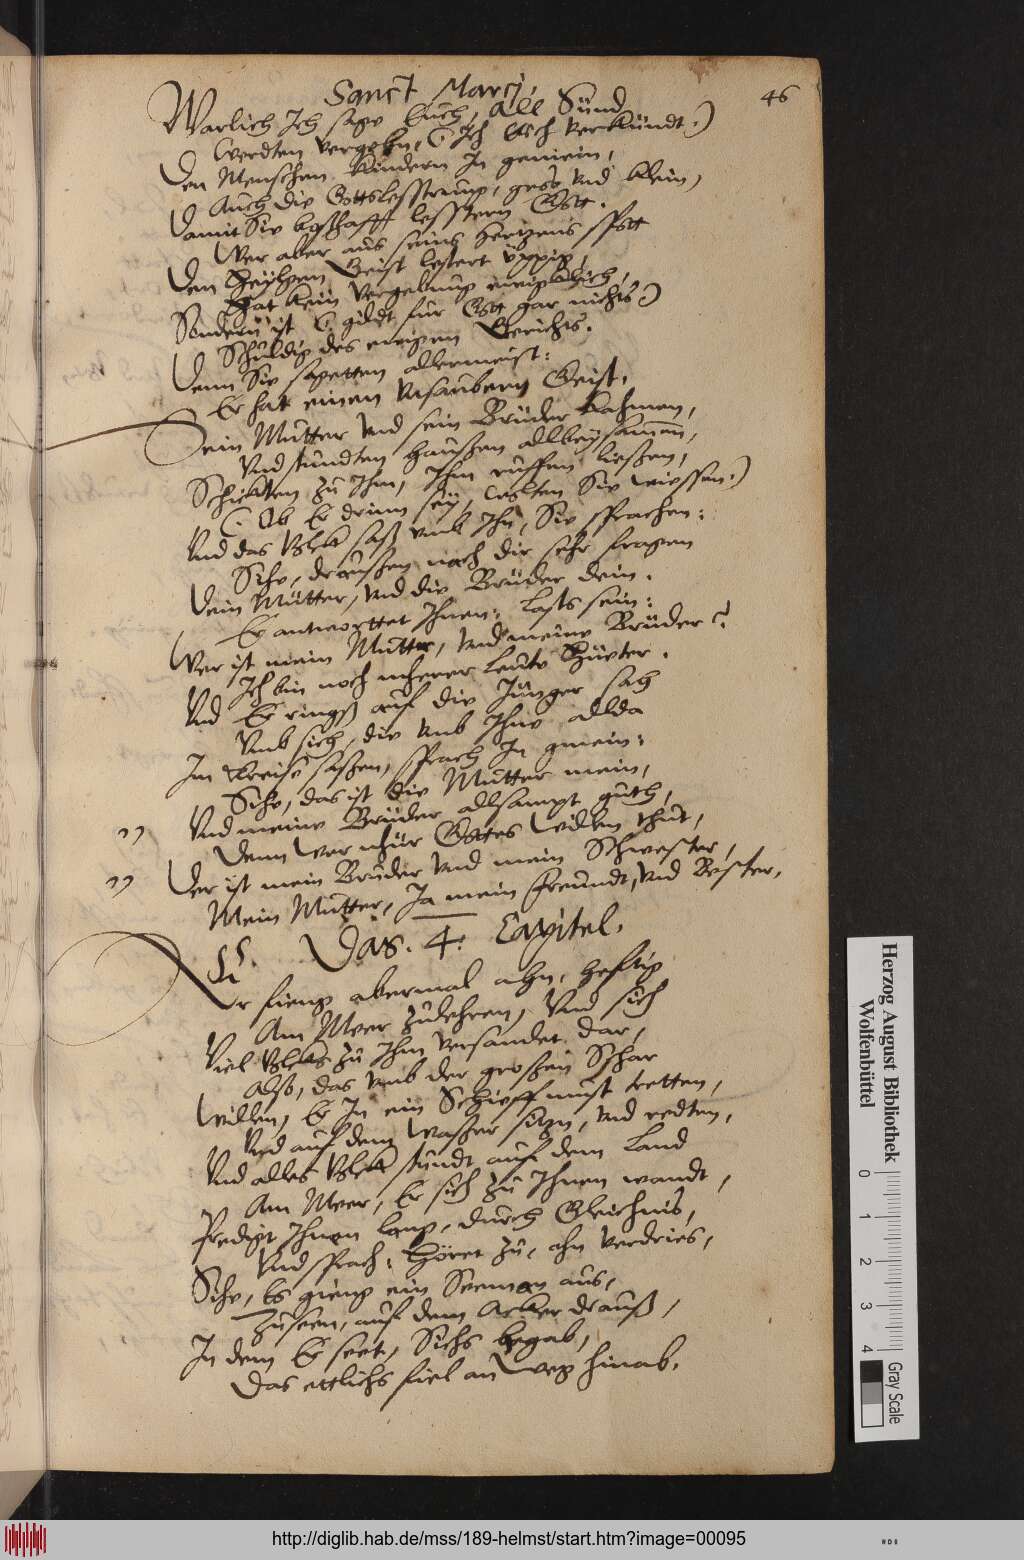 Sanct Marci.
46
Warlich Ich sage Euch, All Sünd
Werdten vergebn, (: Ich Euch verkündt :)
Den Menschen Kindern In gemein,
Auch die Gottslesstrung, gros vnd klein,
Damit Sie boßhafft lesstern Gott.
Wer aber aus seins hertzens spott
Den Heylgen Geist lestert üppig,
Hat kein vergebung ewiglich,
Sondern ist (: gildt für Gott gar nichts :)
Schuldig des ewigen Gerichts.
Denn Sie sagetten allermeist:
Er hat einen Vnsaubern Geist.
Sein Mutter vnd sein Brüder kahmen,
Vnd stundten haußen allbeysamen,
Schickten zu Ihm, Ihm ruffen liessen,
(: Ob Er drinn sey, wolten Sie wiessen :)
Vnd das Volck saß vmb Ihn, Sie sprachen:
Sihe, draussen nach dir sehr fragen
Dein Mutter, vnd die Brüder dein.
Er antworttet Ihnen: Lasts sein:
Wer ist mein Mutter, vnd meine Brüder?
Ich bin noch Leute Hüeter.
Vnd Er ringß auf die Jünger sah
Vmb sich, die vmb Ihne allda
Im Kreise sassen, sprach In gmein:
Sihe, das ist die Mutter mein,
Vnd meine Brüder allsampt guth,
Denn wer nhür Gottes willen thut,
Der ist mein Bruder vnd mein Schwester,
Mein Mutter, Ja mein freundt, vnd Bester.
Das. 4. Capitel.
Er fieng abermal ahn, hefftig
Am Meer zulehren, Vnd sich
Viel Volcks zu Ihm versandet dar,
Also, das vmb der grossen Schar
Willen, Er In ein Schieff must tretten,
Vnd auf dem Wasser sitzn, vnd redten,
Vnd alles Volck stundt auf dem Land
Am Meer, Er sich zu Ihnen wandt,
Predigt Ihnen lang, durch Gleichnis,
Vnd sprach: Höret zu, ahn verdries,
Sihe, Es gieng ein Seeman aus,
Zuseen, auf dem Acker drauß,
In dem Er seet, Sichs begab,
Das ettlichs fiel an weg hinab.
Herzog August Bibliothek
Wolfenbüttel
0 1 2 3 4
Gray Scale
http://diglib.hab.de/mss/189-helmst/start.htm?image=00095